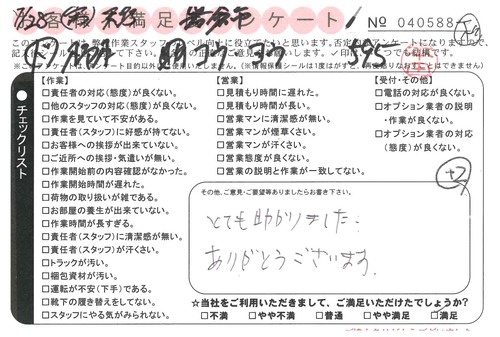 お客様不満足アンケート
№ 040588
チェックリスト
【作業】
□責任者の対応(態度)が良くない。
□他のスタッフの対応(態度)が良くない。
□作業を見ていて不安がある。
□責任者(スタッフ)に好感が持てない。
□お客様への挨拶が出来ていない。
□ご近所への挨拶・気遣いが無い。
□作業開始前の内容確認がなかった。
□作業開始時間が遅れた。
□荷物の取り扱いが雑である。
□お部屋の養生が出来ていない。
□作業時間が長すぎる。
□責任者(スタッフ)に清潔感が無い。
□責任者(スタッフ)が汗くさい。
□トラックが汚い。
□梱包資材が汚い。
□運転が不安(下手)である。
□靴下の履き替えをしてない。
□スタッフにやる気がみられない。
【営業】
□見積もり時間に遅れた。
□見積もり時間が長い。
□営業マンに清潔感が無い。
□営業マンが煙草くさい。
□営業マンが汗くさい。
□営業態度が良くない。
□営業の説明と作業が一致してない。
【受付・その他】
□電話の対応が良くない。
□オプション業者の説明
・作業が良くない。
□オプション業者の対応
(態度)が良くない。
その他、ご意見・ご要望等ありましたらお書き下さい。
とても助かりました。
ありがとうございます。
☆当社をご利用いただきまして、ご満足いただけたでしょうか?
□不満 □やや不満 □普通 □やや満足 □満足